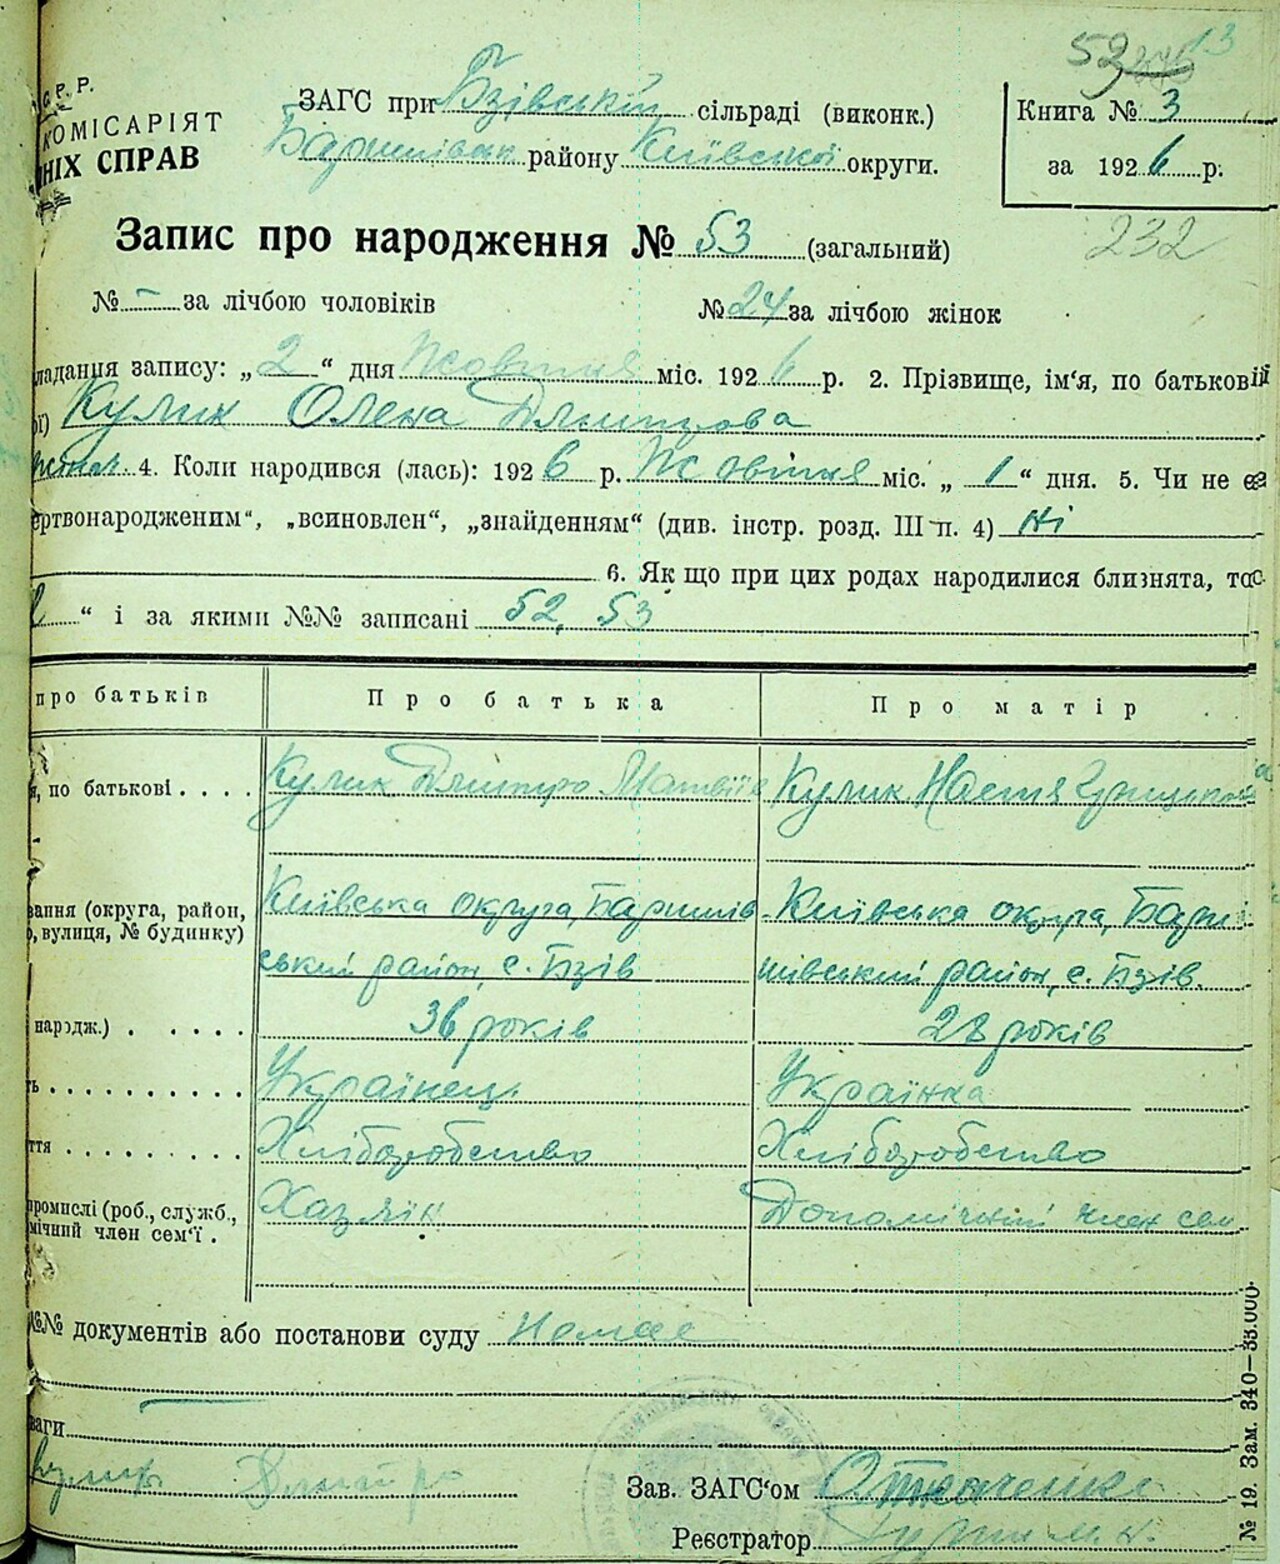 С. Р. Р.
КОМІСАРІЯТ
НІХ СПРАВ
53 13
ЗАГС при Бзівській сільраді (виконк.)
Баришівськ району Київської округи.
Книга № 3
за 1926 р.
Запис про народження № 53 (загальний)
232
№ - за лічбою чоловіків № 24 за лічбою жінок
ладання запису: „ 2 “ дня Жовтня міс. 1926 р. 2. Прізвище, ім'я, по батькові
ої) Кулик Олена Дмитрова
4. Коли народився (лась): 1926 р. Жовтня міс. „ 1 “ дня. 5. Чи не є
ертвонародженим“, „всиновлен“, „знайденням“ (див. інстр. розд. III п. 4) Ні
6. Як що при цих родах народилися близнята, то
“ і за якими №№ записані 52, 53
про батьків Про батька Про матір
я, по батькові . . . . Кулик Дмитро Матвіїв Кулик Настя Грицькова
вання (округа, район, Київська округа, Баришів Київська округа, Бари
о, вулиця, № будинку) ський район, с. Бзів шівський район, с. Бзів.
народж.) . . . . . 36 років 28 років
ть . . . . . . . . . . Українець Українка
ття . . . . . . . . . Хліборобство Хліборобство
промислі (роб., служб., Хазяїн Допомічний член сем
мічний член сем'ї .
№№ документів або постанови суду Немає
ваги
Кулик Дмитро Зав. ЗАГС'ом
Реєстратор
№ 19. Зам. 340—33.000.